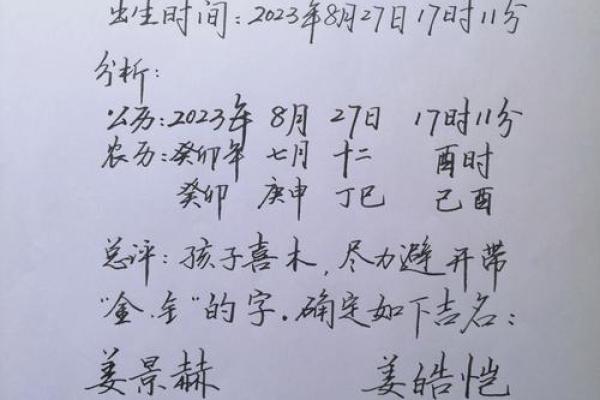 出生时间:2023年8月27日17时11分
分析:
公历:2023年 8月 27日 17时11分
农历:癸卯年 七月 十二 酉时
癸卯 庚申 丁巳 己酉
总评:孩子喜木,尽力避开带
"金.钅"的字.确定如下吉名:
姜景赫 姜皓恺